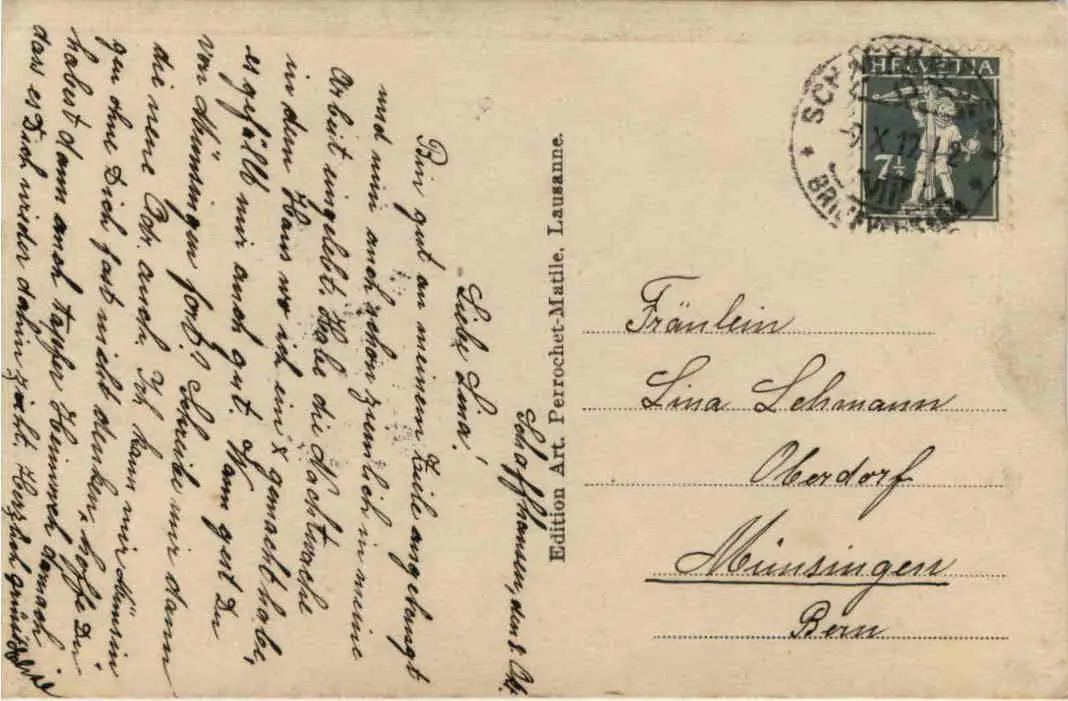 Schaffhausen, den 8. Okt.
Liebe Lina!
Bin gut an meinem Ziele angelangt
und nun auch schon ziemlich in meine
Arbeit eingelebt. Habe die Nachtwache
in dem Haus wo ich ein x gemacht habe,
es gefällt mir auch gut. Wann gest Du
von Münsingen fort? Schreibe mir dann
die neue Adr. auch. Ich kann mir Münsin
gen ohne Dich fast nicht denken, hoffe Du
habest dann auch tapfer Heimweh darnach
dass es Dich wieder dahin zieht. Herzlich grüsst
Edition Art. Perrochet-Matile, Lausanne.
HELVETIA
7½
X.17
VIII
Fräulein
Lina Lehmann
Oberdorf
Münsingen
Bern